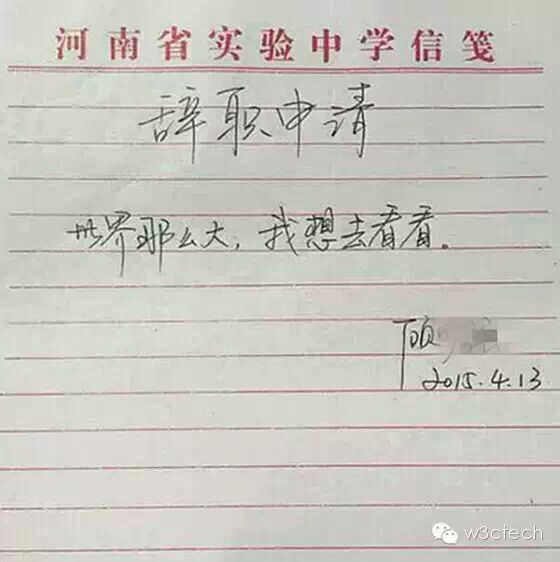 河南省实验中学信笺
辞职申请
世界那么大，我想去看看。
顾
2015.4.13
w3ctech